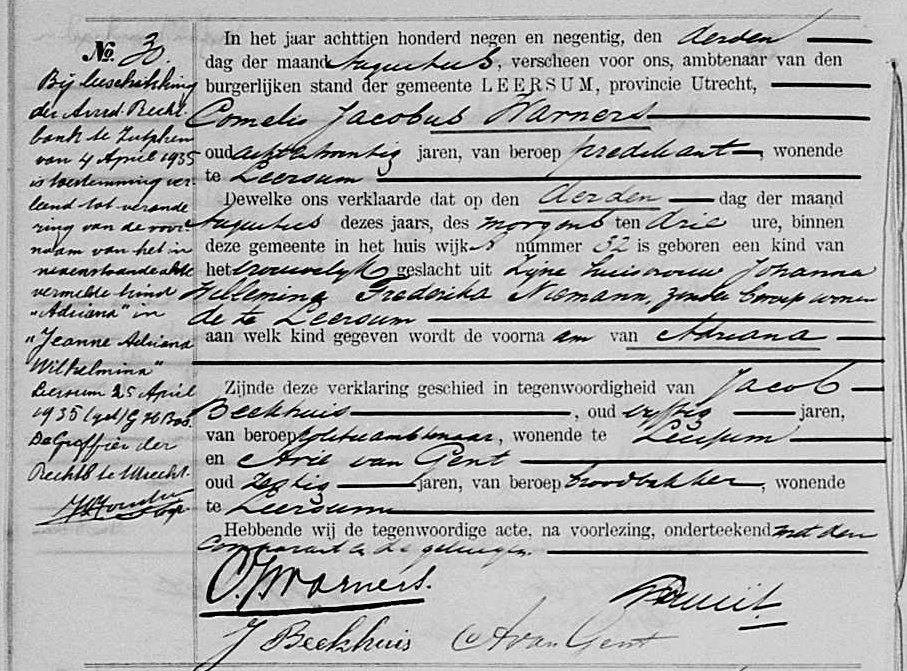 No. 30.
Bij beschikking
der Arrd. Recht-
bank te Zutphen
van 4 April 1935
is toestemming ver-
leend tot verande
ring van de voor
naam van het in
nevenstaande akte
vermelde kind
"Adriana" in
"Jeanne Adriana
Wilhelmina"
Leersum 25 April
1935 (get) G H Bos.
De Griffier der
Rechtb te Utrecht.
In het jaar achttien honderd negen en negentig, den derden
dag der maand Augustus, verscheen voor ons, ambtenaar van den
burgerlijken stand der gemeente LEERSUM, provincie Utrecht,
Cornelis Jacobus Warners
oud achtentwintig jaren, van beroep predikant, wonende
te Leersum
Dewelke ons verklaarde dat op den derden dag der maand
Augustus dezes jaars, des morgens ten drie ure, binnen
deze gemeente in het huis wijk A nummer 32 is geboren een kind van
het vrouwelijk geslacht uit zijne huisvrouw Johanna
Willemina Frederika Niemann, zonder beroep wonen
de te Leersum
aan welk kind gegeven wordt de voorna am van Adriana
Zijnde deze verklaring geschied in tegenwoordigheid van Jacob
Beekhuis, oud vijftig jaren,
van beroep politieambtenaar, wonende te Leersum
en Arie van Gent
oud zestig jaren, van beroep broodbakker, wonende
te Leersum
Hebbende wij de tegenwoordige acte, na voorlezing, onderteekend met den
comparant en de getuigen.
C. J. Warners.
J Beekhuis A van Gent